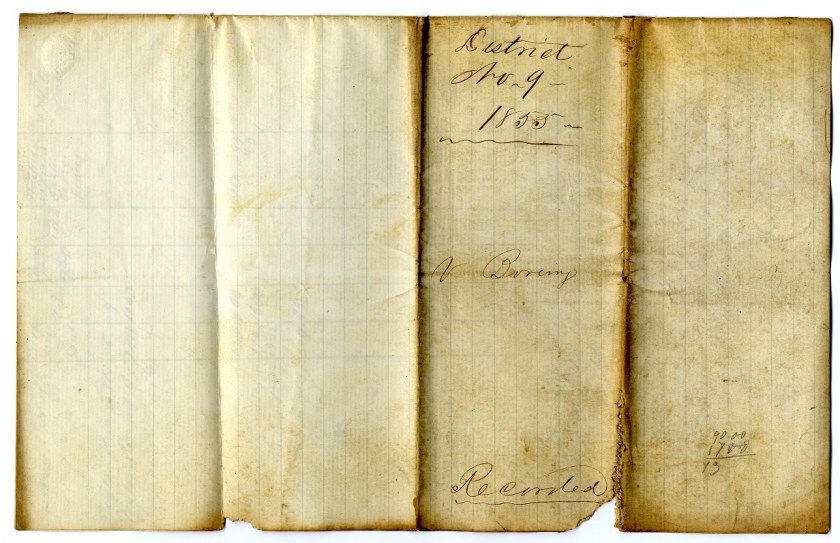 District
No. 9 -
1855 ~
V Boreing
Recorded
90.00